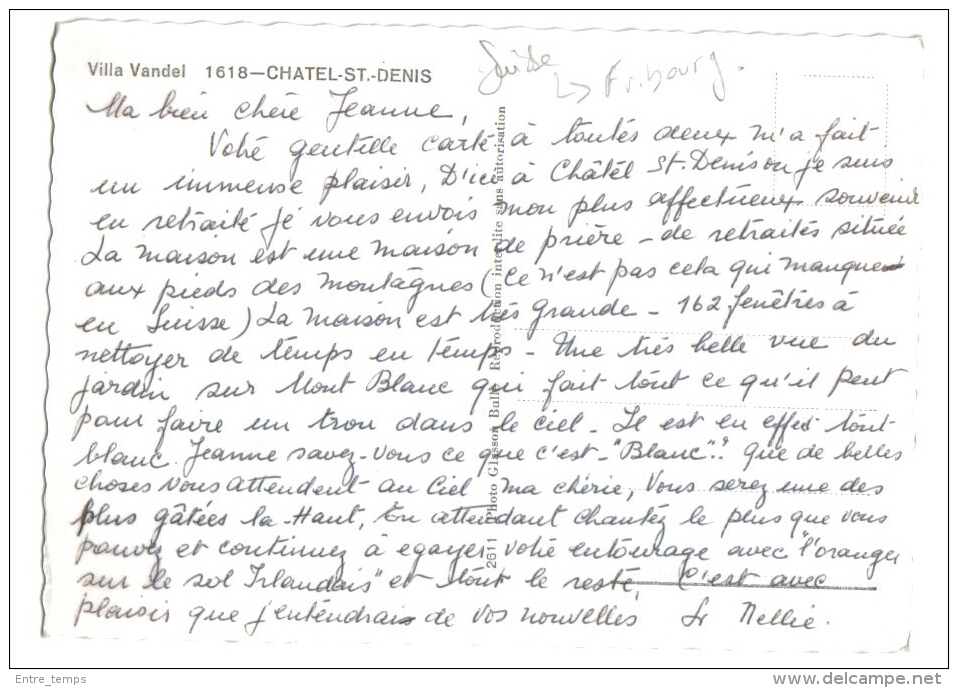 Villa Vandel 1618—CHATEL-ST.-DENIS
Suisse
↳ Fribourg.
Ma bien chère Jeanne,
Votre gentille carte à toutes deux m'a fait
un immense plaisir, D'ici à Châtel St. Denis où je suis
en retraite je vous envois mon plus affectueux souvenir
La maison est une maison de prière - de retraites située
aux pieds des montagnes (Ce n'est pas cela qui manque
en Suisse) La maison est très grande - 162 fenêtres à
nettoyer de temps en temps - Une très belle vue du
jardin sur Mont Blanc qui fait tout ce qu'il peut
pour faire un trou dans le ciel - Il est en effet tout
blanc. Jeanne savez-vous ce que c'est - "Blanc"? que de belles
choses vous attendent au Ciel ma chérie, Vous serez une des
plus gâtées la-Haut, En attendant chantez le plus que vous
pouvez et continuez à egayer votre entourage avec "l'oranger
sur le sol Irlandais" et tout le reste, C'est avec
plaisir que j'entendrais de vos nouvelles Sr Nellie.
2611 Photo Glasson Bulle Reproduction interdite sans autorisation
Entre_temps
www.delcampe.net